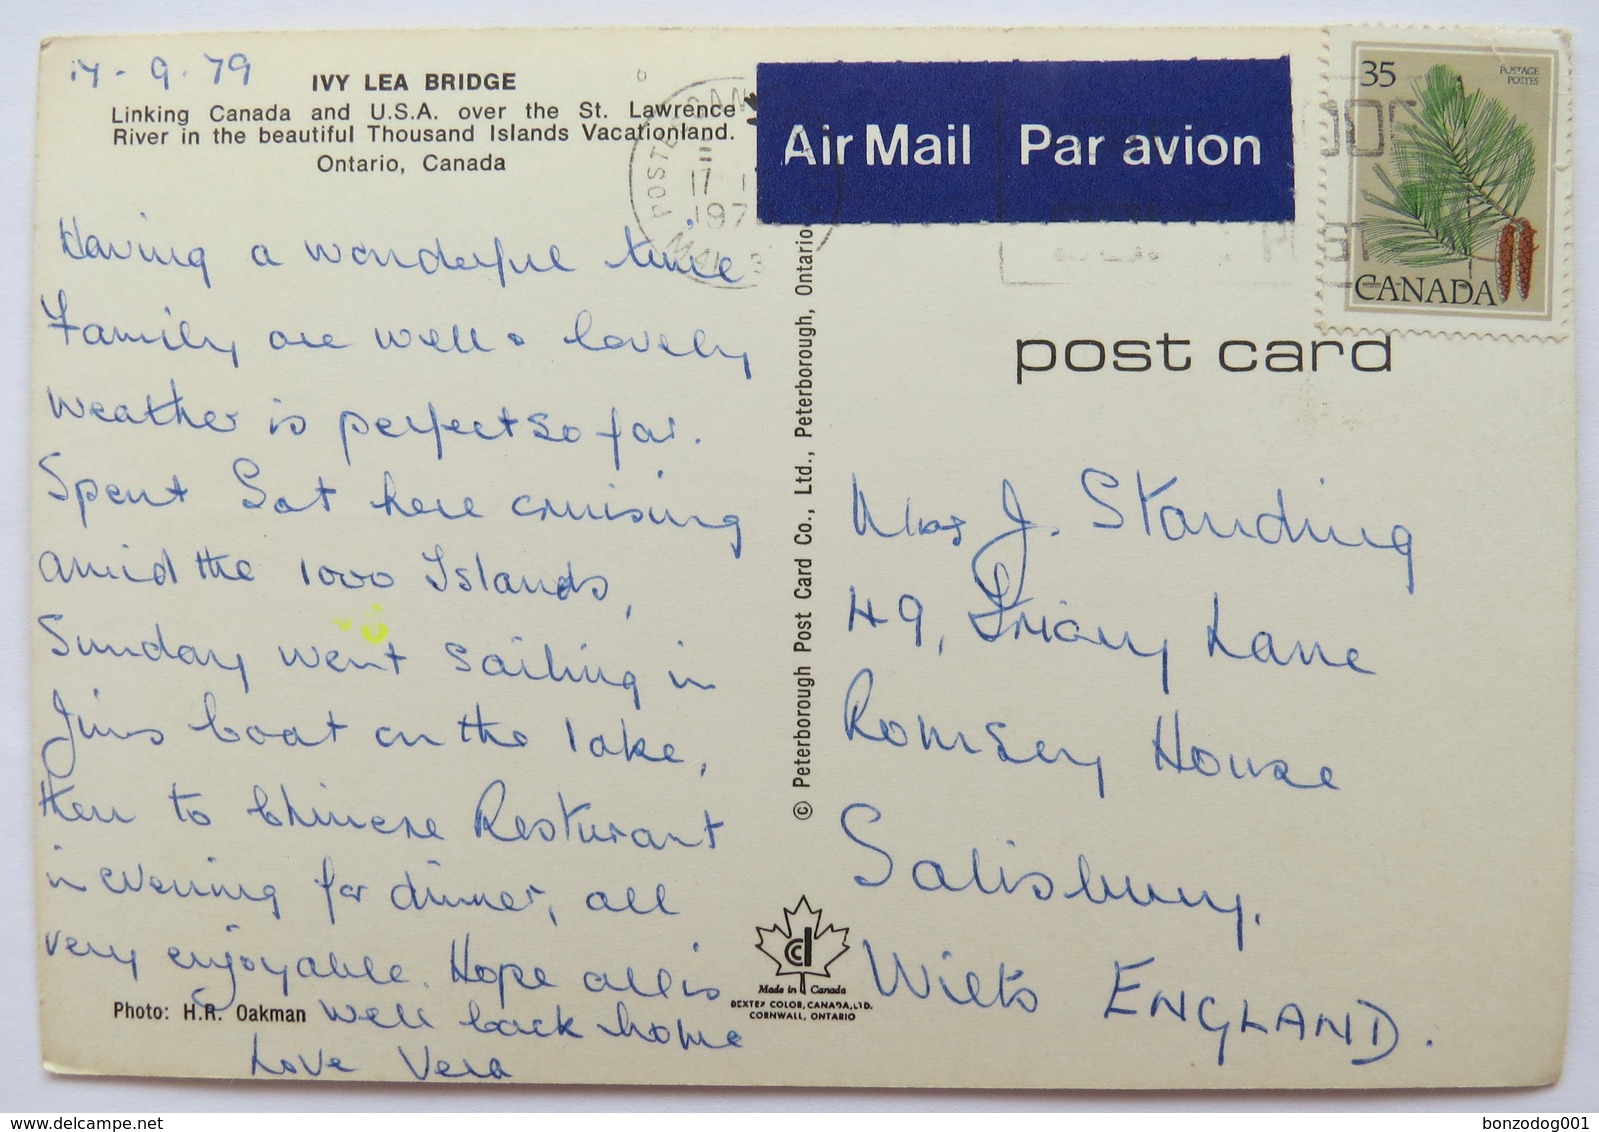 17-9-79
IVY LEA BRIDGE
Linking Canada and U.S.A. over the St. Lawrence
River in the beautiful Thousand Islands Vacationland.
Ontario, Canada
Having a wonderful time
Family are well & lovely
weather is perfect so far.
Spent Sat here cruising
amid the 1000 Islands,
Sunday went sailing in
Jims boat on the lake,
then to Chinese Resturant
in evening for dinner, all
very enjoyable. Hope all is
well back home
Love Vera
Photo: H.R. Oakman
© Peterborough Post Card Co., Ltd., Peterborough, Ontario
Made in Canada
DEXTER COLOR, CANADA, LTD.
CORNWALL, ONTARIO
POSTES CAN
17
197
Air Mail Par avion
35
POSTAGE
POSTES
CANADA
post card
Mrs J. Standing
49, Friary Lane
Romsey House
Salisbury.
Wilts ENGLAND.
bonzodog001